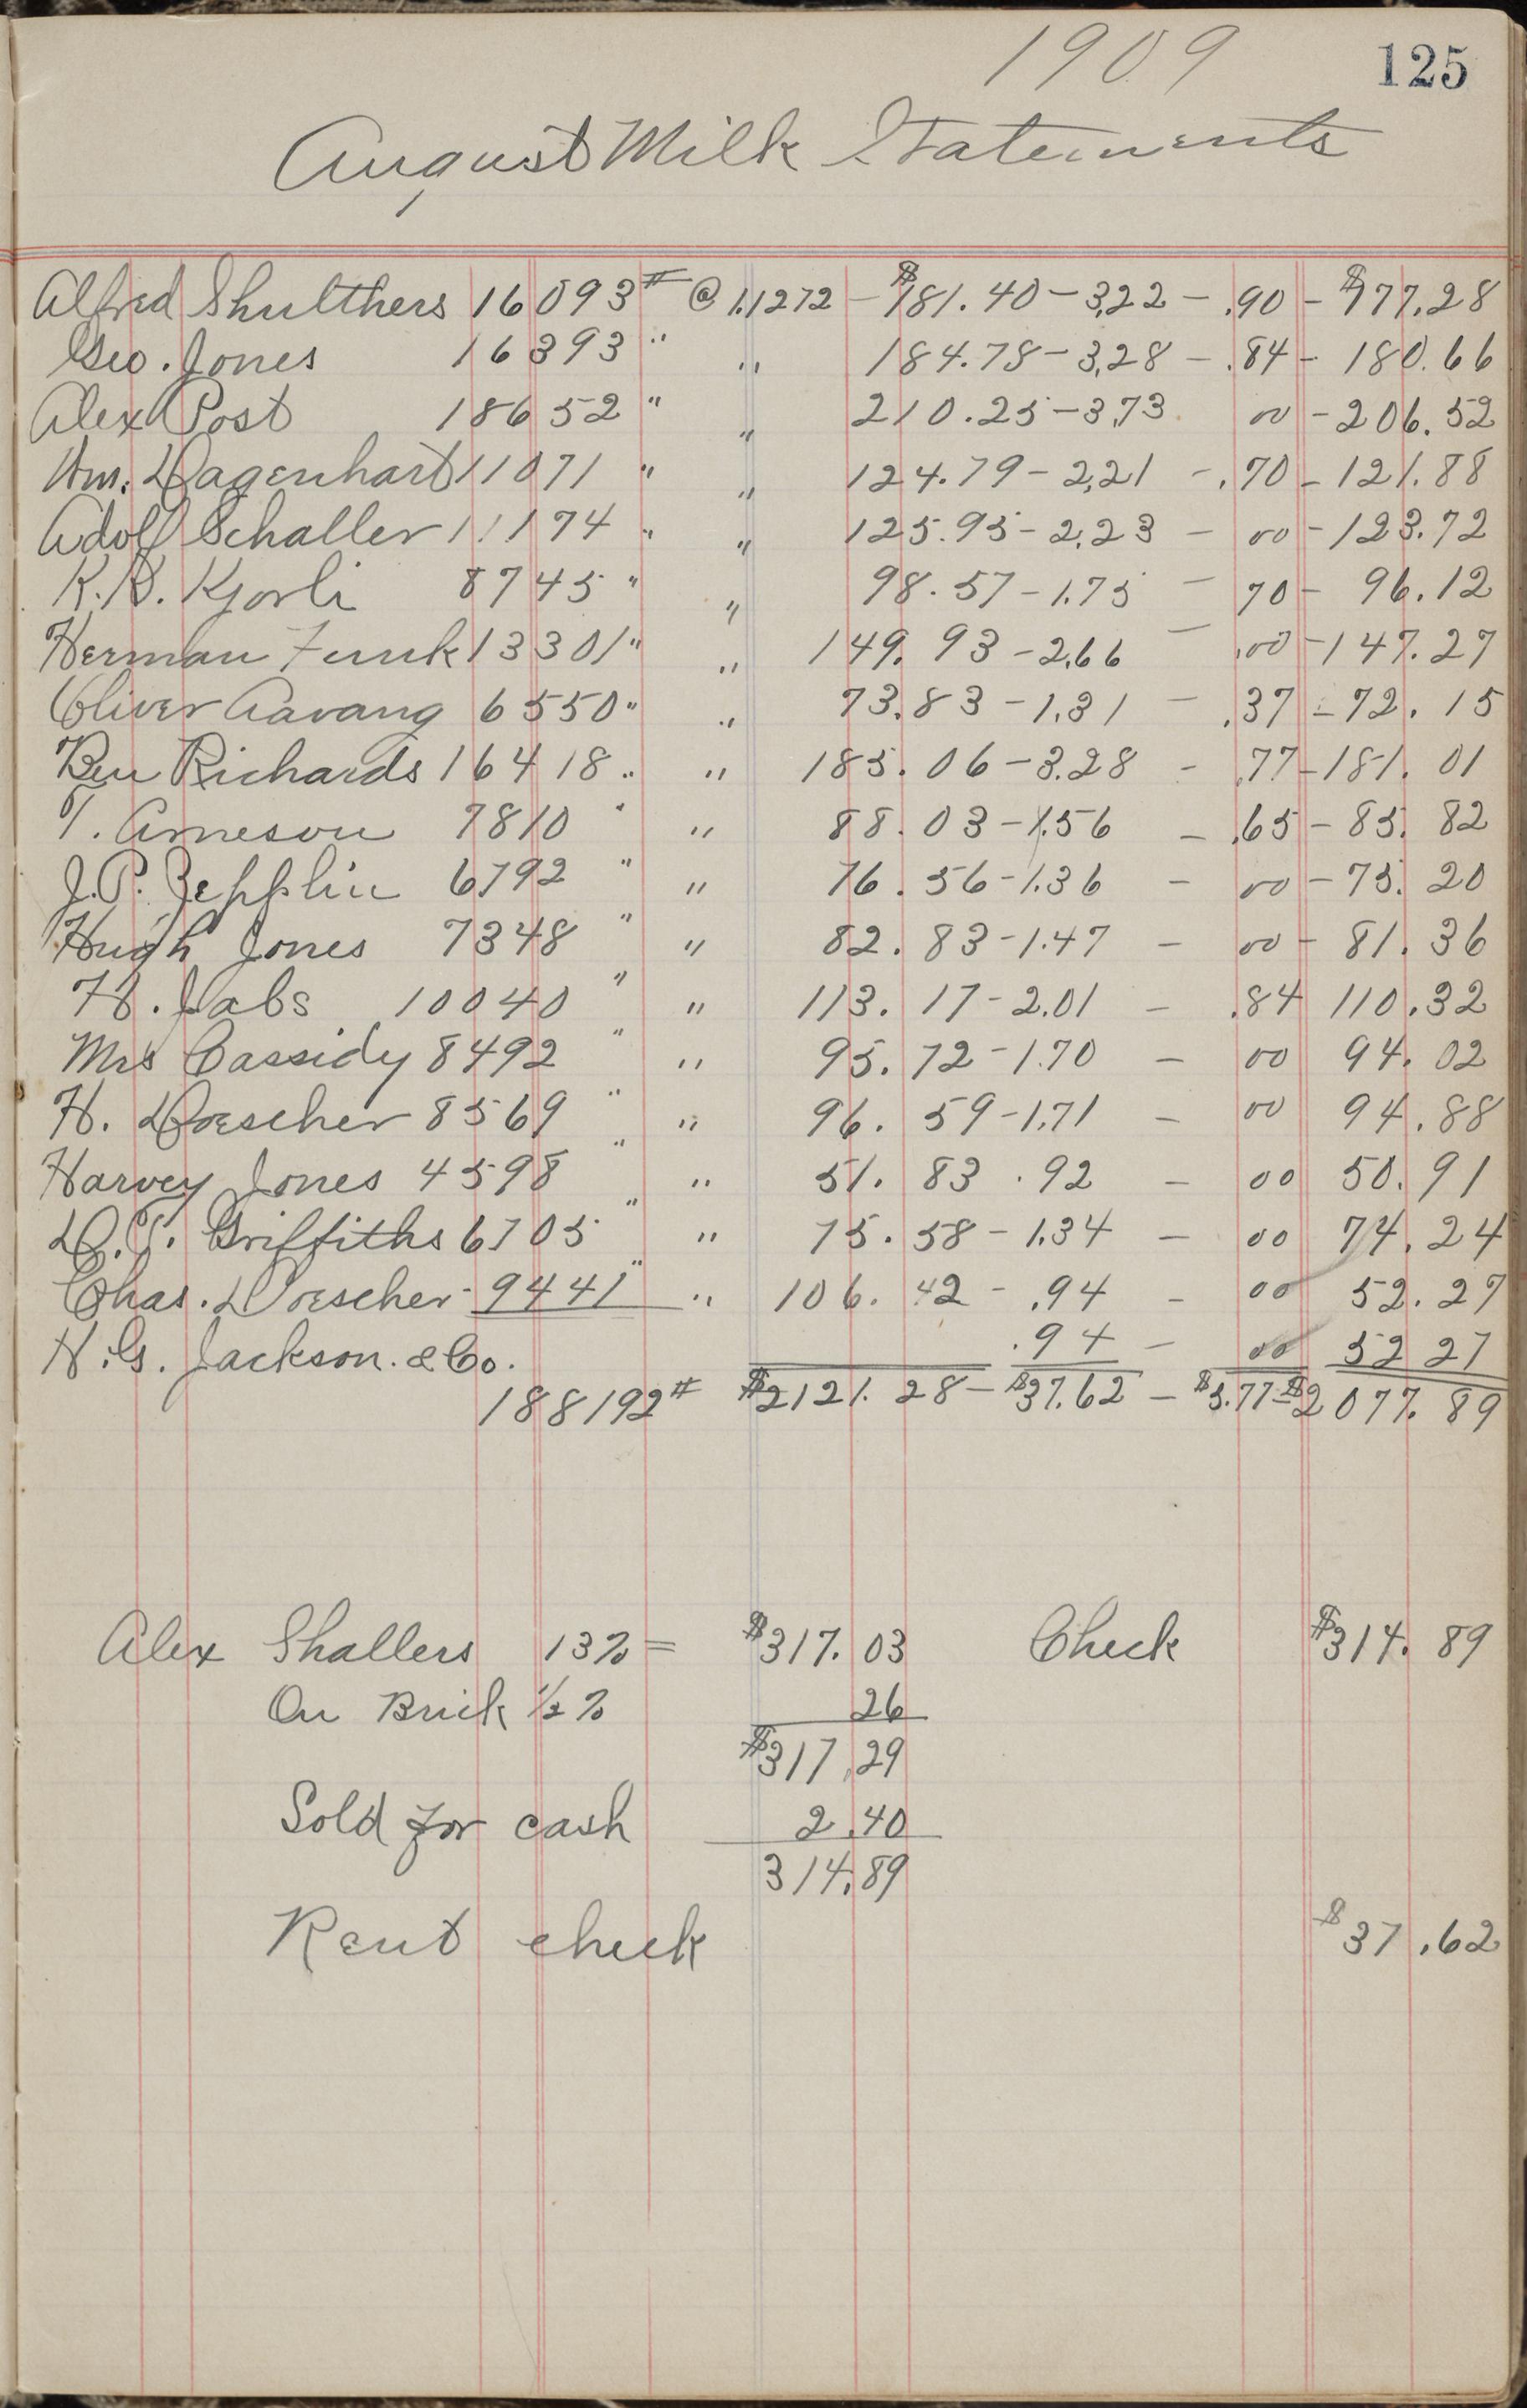 1909
125
August Milk Statements
Alfred Shulthers 16093# @ 1.1272 - $181.40 - 3.22 - .90 - $177.28
Geo. Jones 16393 " " 184.78 - 3.28 - .84 - 180.66
Alex Post 18652 " " 210.25 - 3.73 00 - 206.52
Wm. Dagenhart 11071 " " 124.79 - 2.21 - .70 - 121.88
Adolf Schaller 11174 " " 125.95 - 2.23 - 00 - 123.72
K.K. Kjorli 8745 " " 98.57 - 1.75 - 70 - 96.12
Herman Funk 13301 " " 149.93 - 2.66 - .00 - 147.27
Oliver Aavang 6550 " " 73.83 - 1.31 - .37 - 72.15
Ben Richards 16418 " " 185.06 - 3.28 - .77 - 181.01
T. Arneson 7810 " " 88.03 - 1.56 - .65 - 85.82
J.P. Zepplin 6792 " " 76.56 - 1.36 - 00 - 75.20
Hugh Jones 7348 " " 82.83 - 1.47 - 00 - 81.36
H. Jabs 10040 " " 113.17 - 2.01 - .84 110.32
Mrs Cassidy 8492 " " 95.72 - 1.70 - 00 94.02
H. Doescher 8569 " " 96.59 - 1.71 - 00 94.88
Harvey Jones 4598 " " 51.83 .92 - 00 50.91
D.T. Griffiths 6705 " " 75.58 - 1.34 - 00 74.24
Chas. Doescher - 9441 " " 106.42 - .94 - 00 52.27
H.G. Jackson. & Co. .94 - 00 52 27
188192# $2121.28 - $37.62 - $3.77 - $2077.89
Alex Shallers 13% = $317.03 Check $314.89
On Brick ½% 26
$317.29
Sold for cash 2.40
314.89
Rent check $37.62